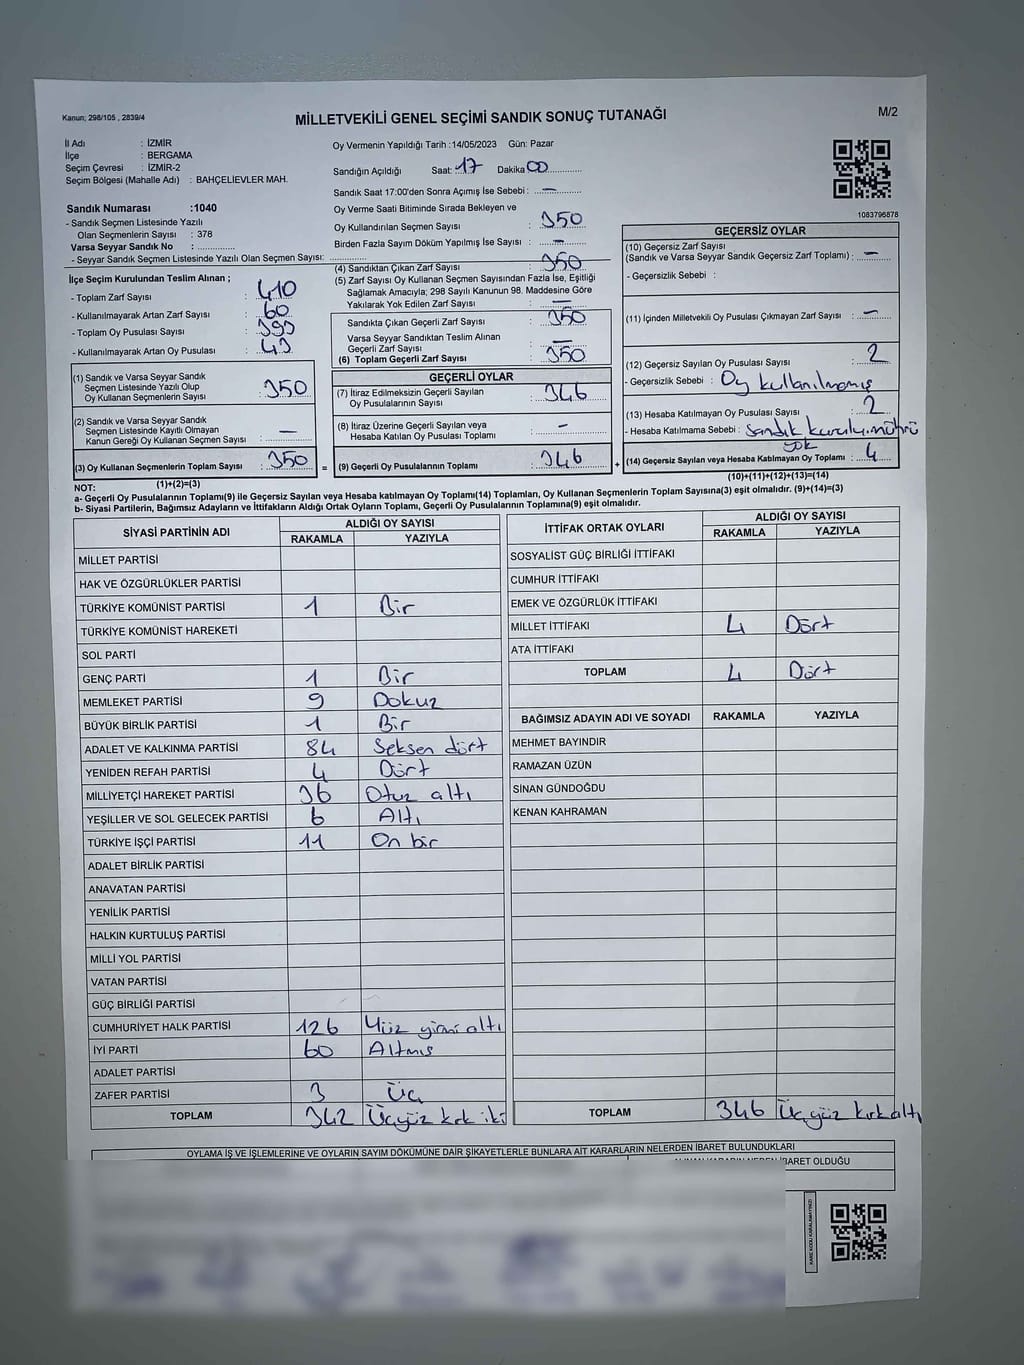 Kanun; 298/105 , 2839/4
MİLLETVEKİLİ GENEL SEÇİMİ SANDIK SONUÇ TUTANAĞI
M/2
İl Adı : İZMİR
İlçe : BERGAMA
Seçim Çevresi : İZMİR-2
Seçim Bölgesi (Mahalle Adı) : BAHÇELİEVLER MAH.
Sandık Numarası :1040
- Sandık Seçmen Listesinde Yazılı
Olan Seçmenlerin Sayısı : 378
Varsa Seyyar Sandık No : ............
- Seyyar Sandık Seçmen Listesinde Yazılı Olan Seçmen Sayısı: ............
Oy Vermenin Yapıldığı Tarih :14/05/2023 Gün: Pazar
Sandığın Açıldığı Saat: 17 Dakika 00
Sandık Saat 17:00'den Sonra Açımış İse Sebebi : —
Oy Verme Saati Bitiminde Sırada Bekleyen ve
Oy Kullandırılan Seçmen Sayısı : 350
Birden Fazla Sayım Döküm Yapılmış İse Sayısı : —
1083796878
İlçe Seçim Kurulundan Teslim Alınan ;
- Toplam Zarf Sayısı : 410
- Kullanılmayarak Artan Zarf Sayısı : 60
- Toplam Oy Pusulası Sayısı : 393
- Kullanılmayarak Artan Oy Pusulası : 43
(1) Sandık ve Varsa Seyyar Sandık
Seçmen Listesinde Yazılı Olup
Oy Kullanan Seçmenlerin Sayısı : 350
(2) Sandık ve Varsa Seyyar Sandık
Seçmen Listesinde Kayıtlı Olmayan
Kanun Gereği Oy Kullanan Seçmen Sayısı : —
(3) Oy Kullanan Seçmenlerin Toplam Sayısı : 350
(1)+(2)=(3)
(4) Sandıktan Çıkan Zarf Sayısı : 350
(5) Zarf Sayısı Oy Kullanan Seçmen Sayısından Fazla İse, Eşitliği
Sağlamak Amacıyla; 298 Sayılı Kanunun 98. Maddesine Göre
Yakılarak Yok Edilen Zarf Sayısı : —
Sandıkta Çıkan Geçerli Zarf Sayısı : 350
Varsa Seyyar Sandıktan Teslim Alınan
Geçerli Zarf Sayısı : —
(6) Toplam Geçerli Zarf Sayısı : 350
GEÇERLİ OYLAR
(7) İtiraz Edilmeksizin Geçerli Sayılan
Oy Pusulalarının Sayısı : 346
(8) İtiraz Üzerine Geçerli Sayılan veya
Hesaba Katılan Oy Pusulaları Toplamı : -
= (9) Geçerli Oy Pusulalarının Toplamı : 346
GEÇERSİZ OYLAR
(10) Geçersiz Zarf Sayısı
(Sandık ve Varsa Seyyar Sandık Geçersiz Zarf Toplamı) : —
- Geçersizlik Sebebi :
(11) İçinden Milletvekili Oy Pusulası Çıkmayan Zarf Sayısı : —
(12) Geçersiz Sayılan Oy Pusulası Sayısı : 2
- Geçersizlik Sebebi : Oy kullanılmamış
(13) Hesaba Katılmayan Oy Pusulası Sayısı : 2
- Hesaba Katılmama Sebebi : Sandık kurulu mührü
yok
+ (14) Geçersiz Sayılan veya Hesaba Katılmayan Oy Toplamı : 4
(10)+(11)+(12)+(13)=(14)
NOT:
a- Geçerli Oy Pusulalarının Toplamı(9) ile Geçersiz Sayılan veya Hesaba katılmayan Oy Toplamı(14) Toplamları, Oy Kullanan Seçmenlerin Toplam Sayısına(3) eşit olmalıdır. (9)+(14)=(3)
b- Siyasi Partilerin, Bağımsız Adayların ve İttifakların Aldığı Ortak Oyların Toplamı, Geçerli Oy Pusulalarının Toplamına(9) eşit olmalıdır.
SİYASİ PARTİNİN ADI ALDIĞI OY SAYISI
RAKAMLA YAZIYLA
MİLLET PARTİSİ
HAK VE ÖZGÜRLÜKLER PARTİSİ
TÜRKİYE KOMÜNİST PARTİSİ 1 Bir
TÜRKİYE KOMÜNİST HAREKETİ
SOL PARTİ
GENÇ PARTİ 1 Bir
MEMLEKET PARTİSİ 9 Dokuz
BÜYÜK BİRLİK PARTİSİ 1 Bir
ADALET VE KALKINMA PARTİSİ 84 Seksen dört
YENİDEN REFAH PARTİSİ 4 Dört
MİLLİYETÇİ HAREKET PARTİSİ 36 Otuz altı
YEŞİLLER VE SOL GELECEK PARTİSİ 6 Altı
TÜRKİYE İŞÇİ PARTİSİ 11 On bir
ADALET BİRLİK PARTİSİ
ANAVATAN PARTİSİ
YENİLİK PARTİSİ
HALKIN KURTULUŞ PARTİSİ
MİLLİ YOL PARTİSİ
VATAN PARTİSİ
GÜÇ BİRLİĞİ PARTİSİ
CUMHURİYET HALK PARTİSİ 126 Yüz yirmi altı
İYİ PARTİ 60 Altmış
ADALET PARTİSİ
ZAFER PARTİSİ 3 Üç
TOPLAM 342 Üçyüz kırk iki
İTTİFAK ORTAK OYLARI ALDIĞI OY SAYISI
RAKAMLA YAZIYLA
SOSYALİST GÜÇ BİRLİĞİ İTTİFAKI
CUMHUR İTTİFAKI
EMEK VE ÖZGÜRLÜK İTTİFAKI
MİLLET İTTİFAKI 4 Dört
ATA İTTİFAKI
TOPLAM 4 Dört
BAĞIMSIZ ADAYIN ADI VE SOYADI RAKAMLA YAZIYLA
MEHMET BAYINDIR
RAMAZAN ÜZÜN
SİNAN GÜNDOĞDU
KENAN KAHRAMAN
TOPLAM 346 Üçyüz kırkaltı
OYLAMA İŞ VE İŞLEMLERİNE VE OYLARIN SAYIM DÖKÜMÜNE DAİR ŞİKAYETLERLE BUNLARA AİT KARARLARIN NELERDEN İBARET BULUNDUKLARI
İBARET OLDUĞU
KARE KODU KARALAMAYINIZ!